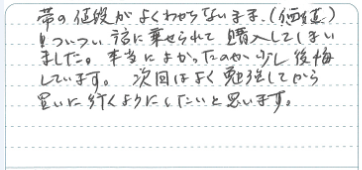 帯の値段がよくわからないまま、(価値)
ついつい話に乗せられて購入してしまい
ました。本当によかったのか少し後悔
しています。次回はよく勉強してから
買いに行くようにしたいと思います。